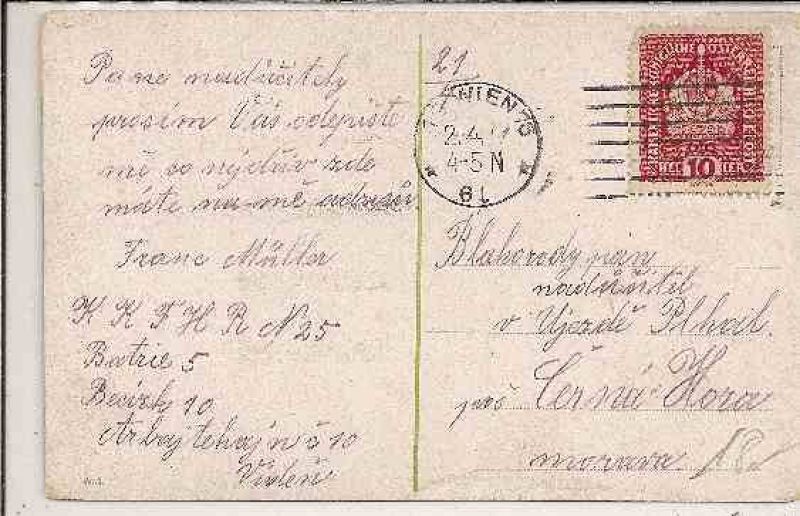 Pane nadučitely
prosím Vás odepište
mě co nejdův zde
máte na mě adresu.
Franc Müller
K K F H R N 25
Batrie 5
Becirk 10
Arbajtehajn č 10
Vídeň
21
WIEN 75
2.4
4-5 N
6L
KAISERLICHE KÖNIGLICHE ÖSTERR
HELLER 10 HELLER
Blahorody pan
nadučitel
v Ujezdě Plhal.
poš Černá Hora
morava